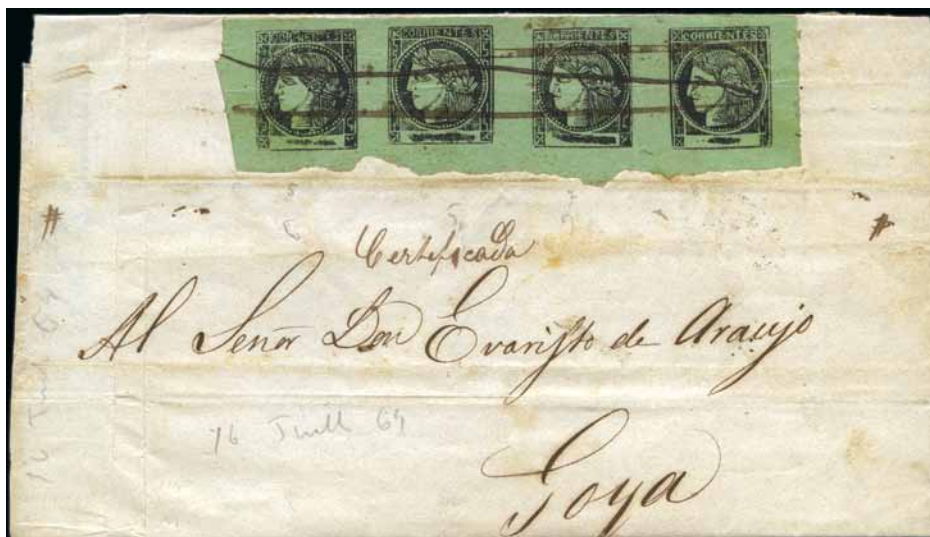 CORRIENTES CORRIENTES CORRIENTES CORRIENTES
Certificada
Al Señor Don Evaristo de Araujo
16 Juill 64
Goya